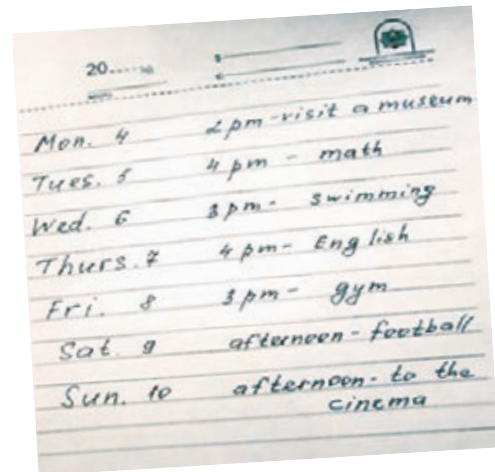 20......
Mon. 4 2 pm - visit a museum
Tues. 5 4 pm - math
Wed. 6 3 pm - swimming
Thurs. 7 4 pm - English
Fri. 8 3 pm - gym
Sat. 9 afternoon - football
Sun. 10 afternoon - to the
cinema